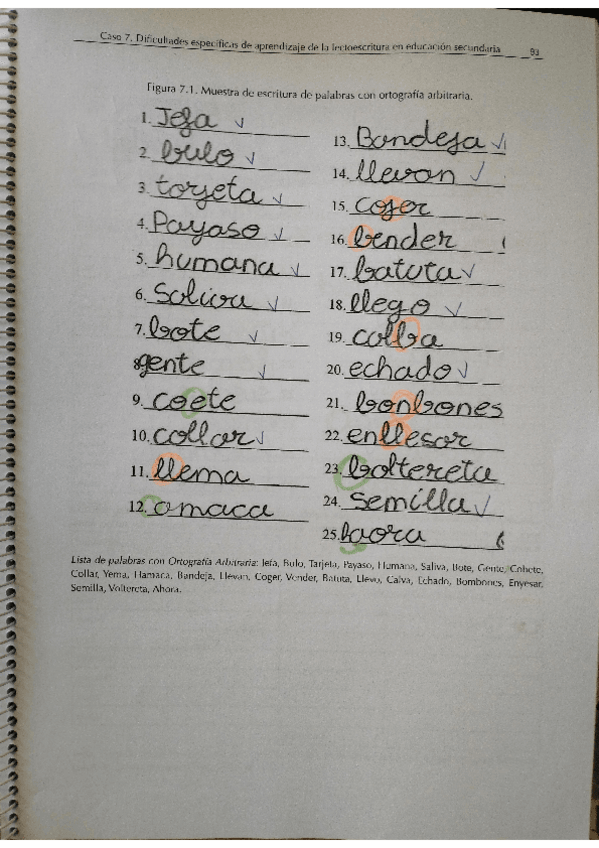 Caso 7. Dificultades específicas de aprendizaje de la lectoescritura en educación secundaria 83
Figura 7.1. Muestra de escritura de palabras con ortografía arbitraria.
1. Jefa
2. bulo
3. tarjeta
4. Payaso
5. humana
6. Saliva
7. bote
8. gente
9. coete
10. collar
11. llema
12. omaca
13. Bandeja
14. llevan
15. cojer
16. bender
17. batuta
18. llego
19. calba
20. echado
21. bonbones
22. enllesar
23. boltereta
24. Semilla
25. haora
Lista de palabras con Ortografía Arbitraria: Jefa, Bulo, Tarjeta, Payaso, Humana, Saliva, Bote, Gente, Cohete,
Collar, Yema, Hamaca, Bandeja, Llevan, Coger, Vender, Batuta, Llevo, Calva, Echado, Bombones, Enyesar,
Semilla, Voltereta, Ahora.